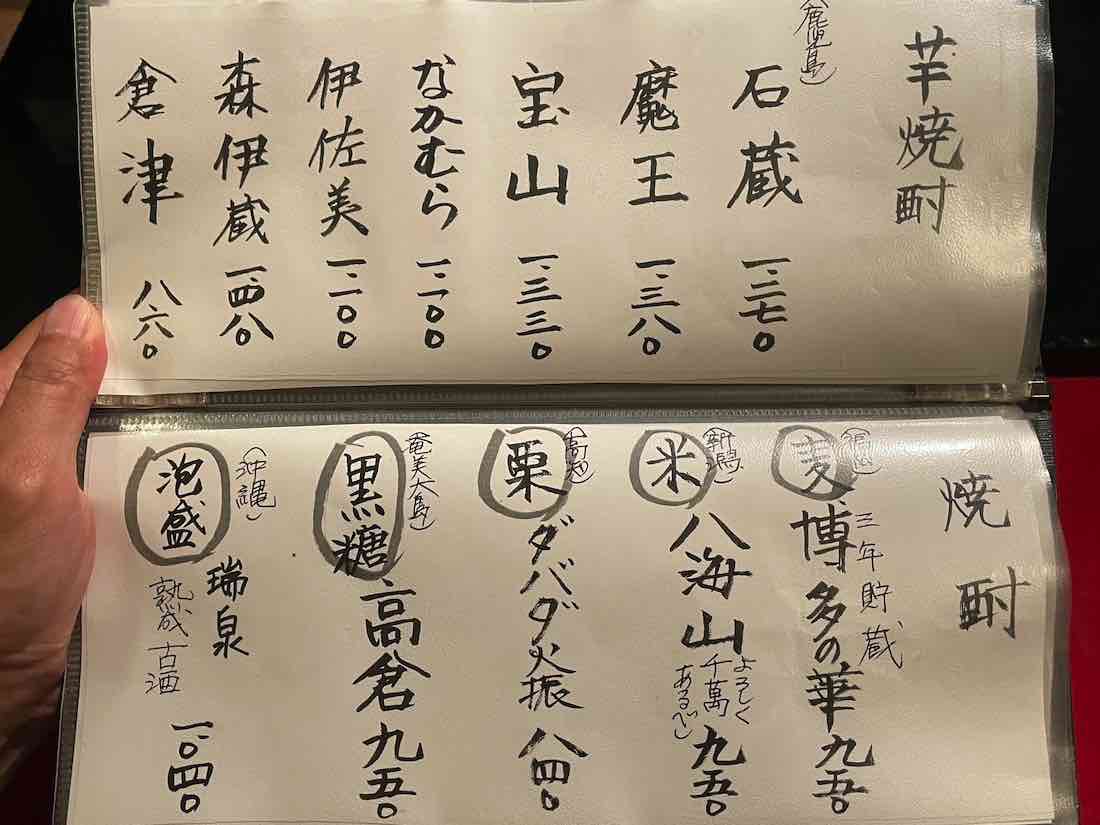 芋焼酎
(鹿児島)
石蔵 一.二七0
魔王 一.三八0
宝山 一.三三0
なかむら 一.二00
伊佐美 一.二00
森伊蔵 一.四八0
倉津 八六0
焼酎
(福岡)
麦 博多の華 九五0
三年貯蔵
(新潟)
米 八海山 九五0
よろしく
千萬
あるべし
(高知)
栗 ダバダ火振 八四0
(奄美大島)
黒糖 高倉 九五0
(沖縄)
泡盛 瑞泉
熟成古酒 一.0四0